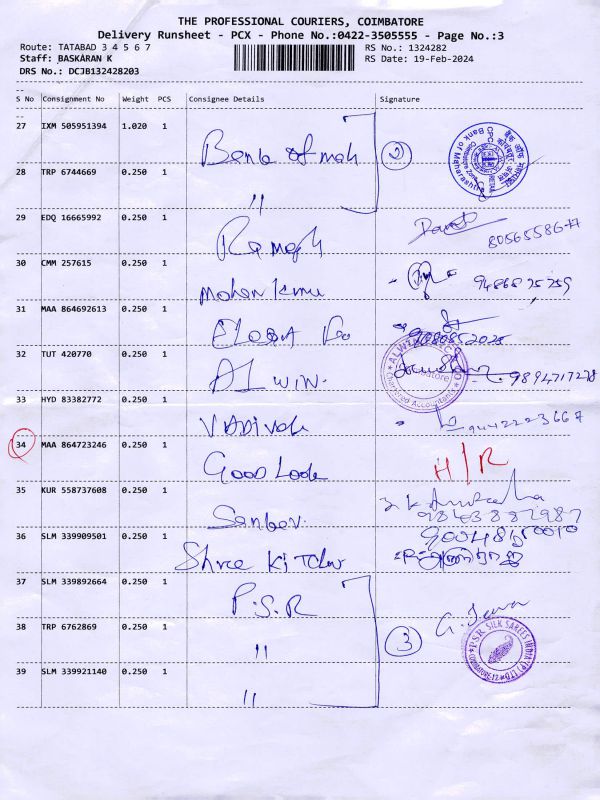 THE PROFESSIONAL COURIERS, COIMBATORE
Delivery Runsheet - PCX - Phone No.:0422-3505555 - Page No.:3
Route: TATABAD 3 4 5 6 7 RS No.: 1324282
Staff: BASKARAN K RS Date: 19-Feb-2024
DRS No.: DCJB132428203
S No Consignment No Weight PCS Consignee Details Signature
27 IXM 505951394 1.020 1 Bank of mah 2
28 TRP 6744669 0.250 1 "
Bank of Maharashtra
29 EDQ 16665992 0.250 1 Ramesh 8056555867
30 CMM 257615 0.250 1 Mohan kumu 9486825259
31 MAA 864692613 0.250 1 9080852025
32 TUT 420770 0.250 1 ALWIN. 9894717278
Chartered Accountants
33 HYD 83382772 0.250 1 VADIVEL 9442223667
34 MAA 864723246 0.250 1 Good Look H/R
35 KUR 558737608 0.250 1 9843887987
36 SLM 339909501 0.250 1 Shree Kitchen
37 SLM 339892664 0.250 1 P.S.R
38 TRP 6762869 0.250 1 " 3
PSR SILK SAREES INDIA (P) LTD
39 SLM 339921140 0.250 1 "